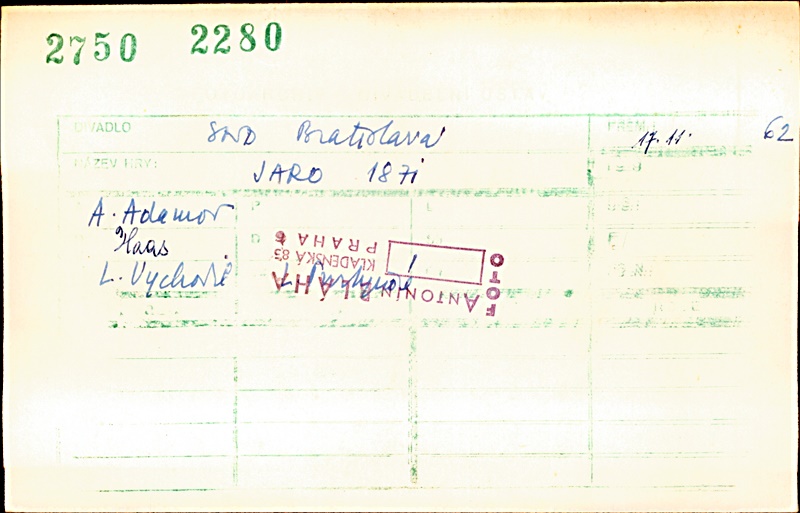 2750 2280
DIVADLO SND Bratislava PREM.: 17. 11. 62
NÁZEV HRY: JARO 1871
A. Adamov
Haas
L. Vychodil
FOTO
ANTONÍN BLÁHA 1
KLADENSKÁ 83
PRAHA 6